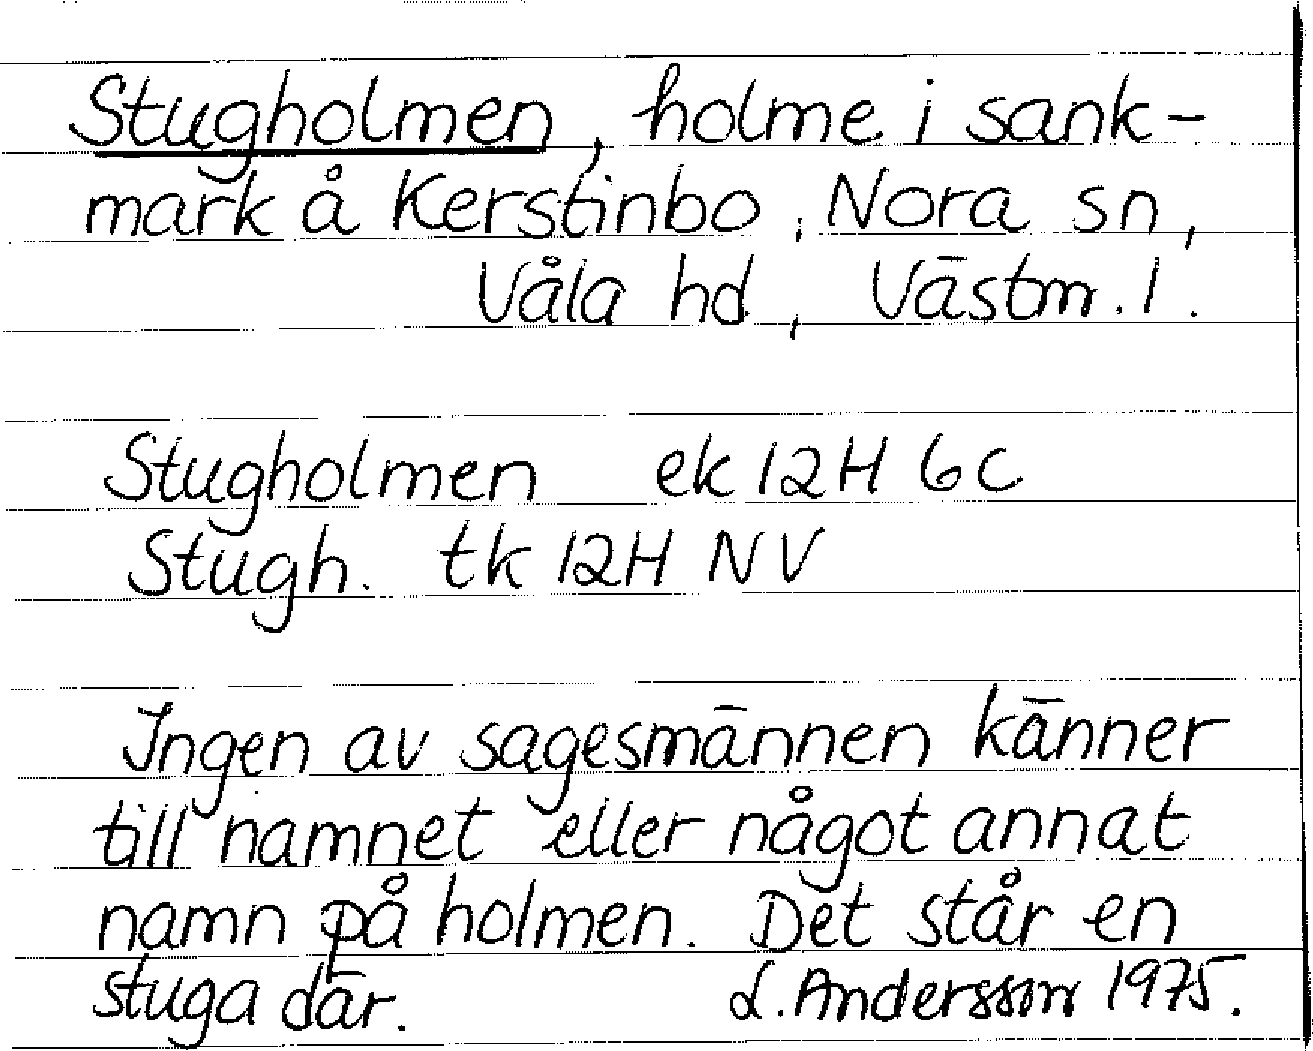 Stugholmen, holme i sank-
mark å Kerstinbo, Nora sn,
Våla hd, Västm. l.
Stugholmen ek 12H 6c
Stugh. tk 12H NV
Ingen av sagesmännen känner
till namnet eller något annat
namn på holmen. Det står en
stuga där. L. Andersson 1975.